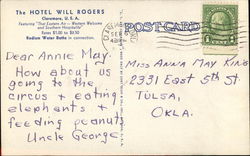 The HOTEL WILL ROGERS
Claremore, U. S. A.
Featuring "Cool Eastern Air - Western Welcome
and Southern Hospitality"
Rates $1.00 to $3.50
Radium Water Baths in connection.
POST CARD
Dear Annie May.
How about us
going to the
circus & eating
elephants &
feeding peanuts
Uncle George
Miss Anna May King
2331 East 5th St
Tulsa,
Okla.